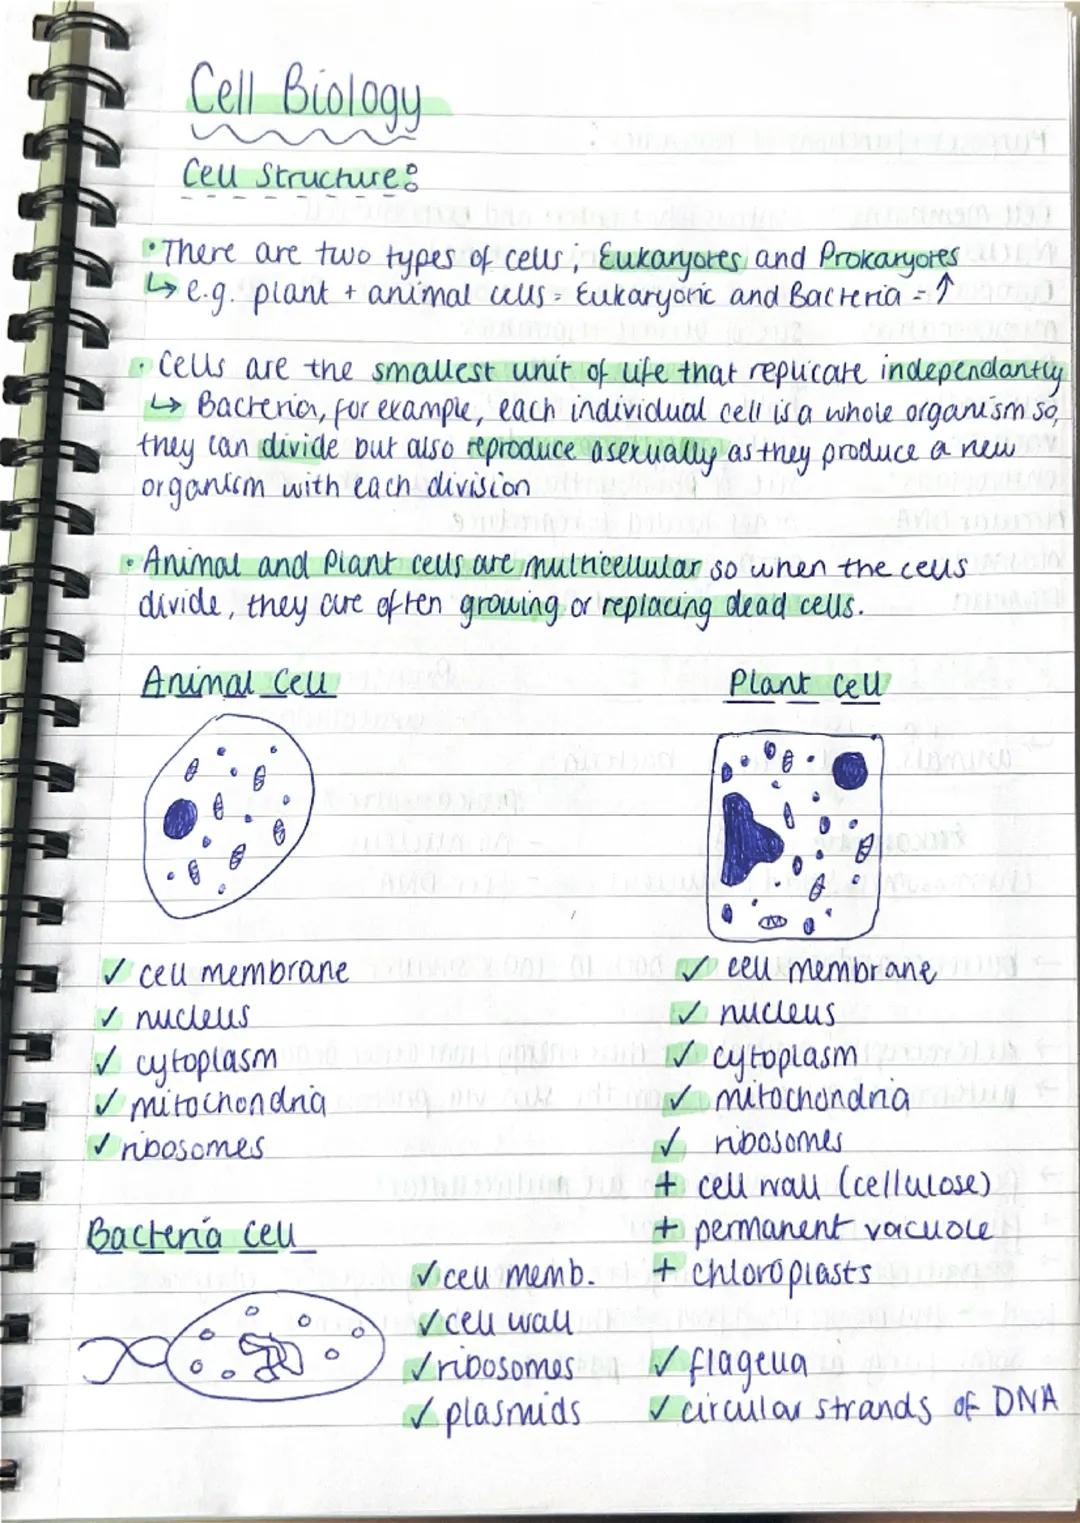 Cell Biology
Cell Structure:
• There are two types of cells; Eukaryotes and Prokaryotes
↳ e.g. plant + animal cells = Eukaryotic and Bacteria = ↑
• Cells are the smallest unit of life that replicate independantly
↳ Bacteria, for example, each individual cell is a whole organism so,
they can divide but also reproduce asexually as they produce a new
organism with each division
• Animal and Plant cells are multicellular so when the cells
divide, they are often growing or replacing dead cells.
Animal Cell
✓ cell membrane
✓ nucleus
✓ cytoplasm
✓ mitochondria
✓ ribosomes
Plant cell
✓ cell membrane
✓ nucleus
✓ cytoplasm
✓ mitochondria
✓ ribosomes
+ cell wall (cellulose)
+ permanent vacuole
+ chloroplasts
Bacteria Cell
✓ cell memb.
✓ cell wall
✓ ribosomes
✓ plasmids
✓ flagella
✓ circular strands of DNA